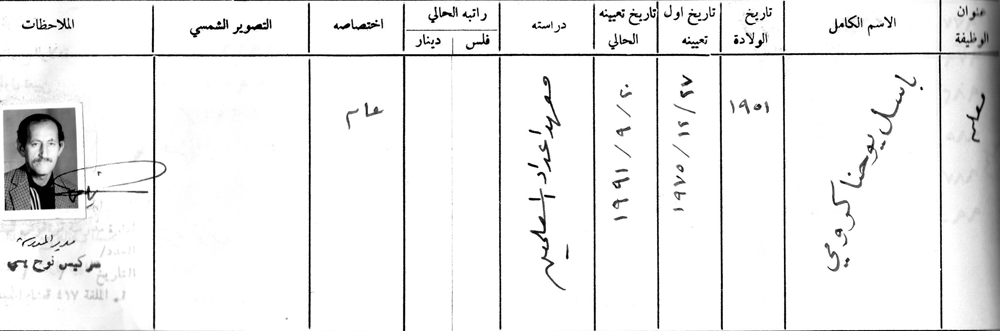 عنوان الوظيفة
الاسم الكامل
تاريخ الولادة
تاريخ اول تعيينه
تاريخ تعيينه الحالي
دراسته
راتبه الحالي
فلس
دينار
اختصاصه
التصوير الشمسي
الملاحظات
معلم
باسل يوحنا كرومي
١٩٥١
١٩٧٥/١٢/٢٧
١٩٩١/٩/٢٠
معهد اعداد المعلمين
عام
مدير المدرسة
سركيس نوح